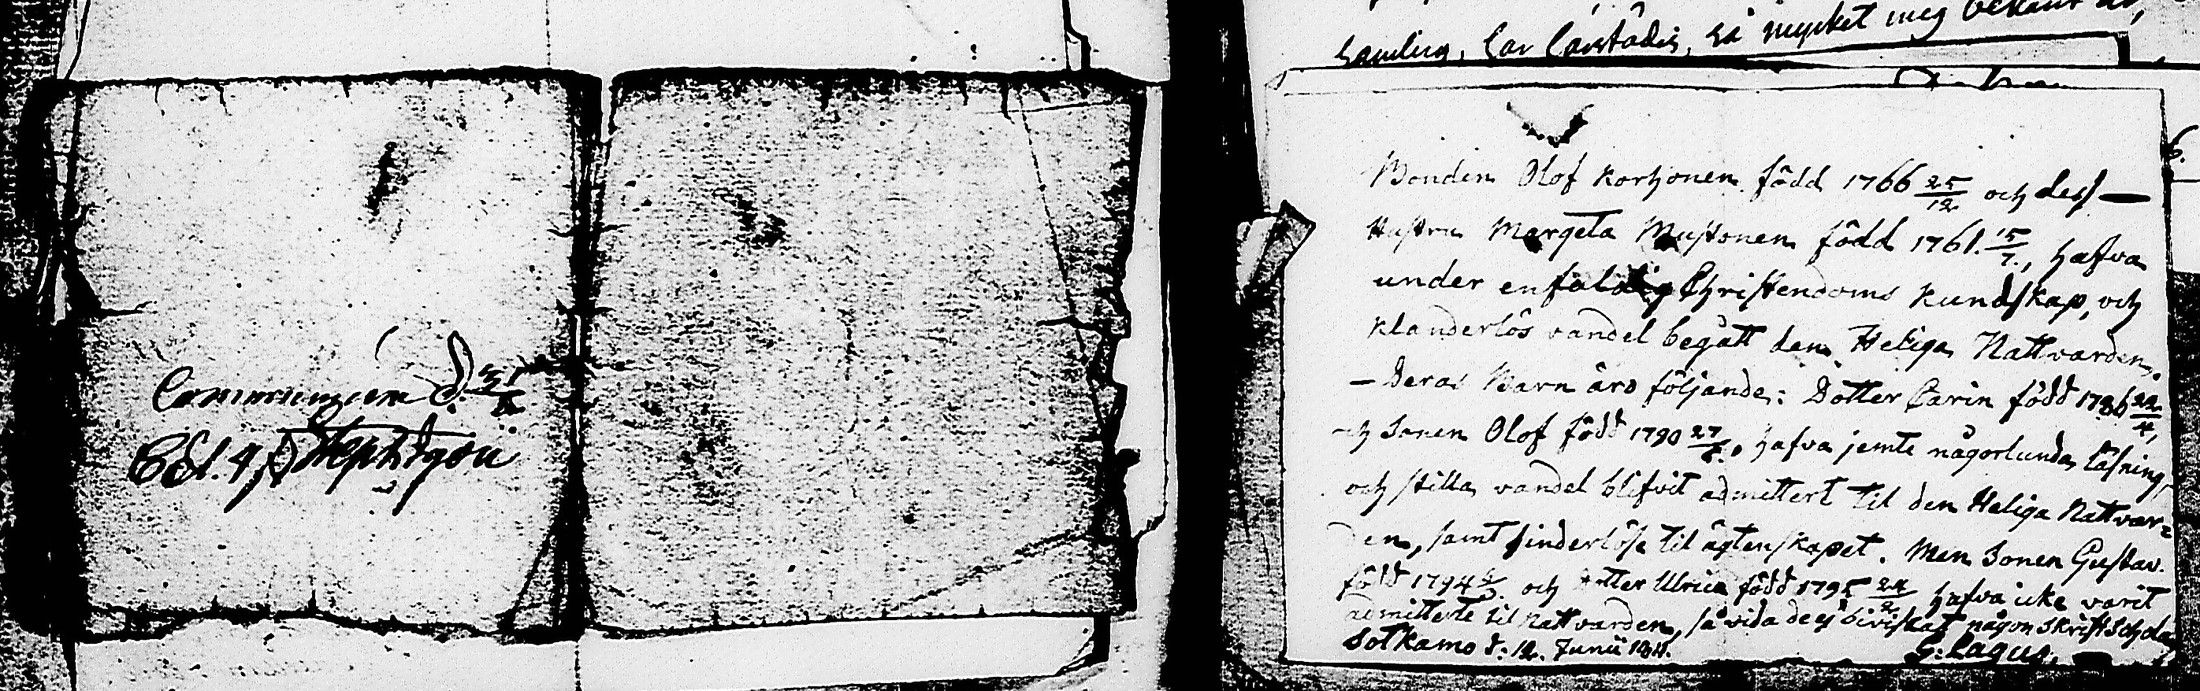 Communicera d.
hamling, Car Carstādis, så mycket mig bekant är,
Bonden Olof Korhonen född 1766 25/12 och dess
Hustru Margeta Mustonen född 1761. 15/7., hafva
under enfaldig Christendoms kundskap, och
klanderlös vandel begått den Heliga Nattvarden.
– Deras Barn äro följande: Dotter Carin född 1786 22/4,
och Sonen Olof född 1790 27/, hafva jemte någorlunda läsning,
och stilla vandel blifvit admittert til den Heliga Nattvar=
den, samt hinderlöse til ägtenskapet. Men Sonen Gustav
född 1794 och Dotter Ulrica född 1795 24/2 hafva icke varit
admitterte til Nattvarden, så vida de ej bivistat någon Skriftschola
Sotkamo d: 12. Junii 1811. G: Lagus.